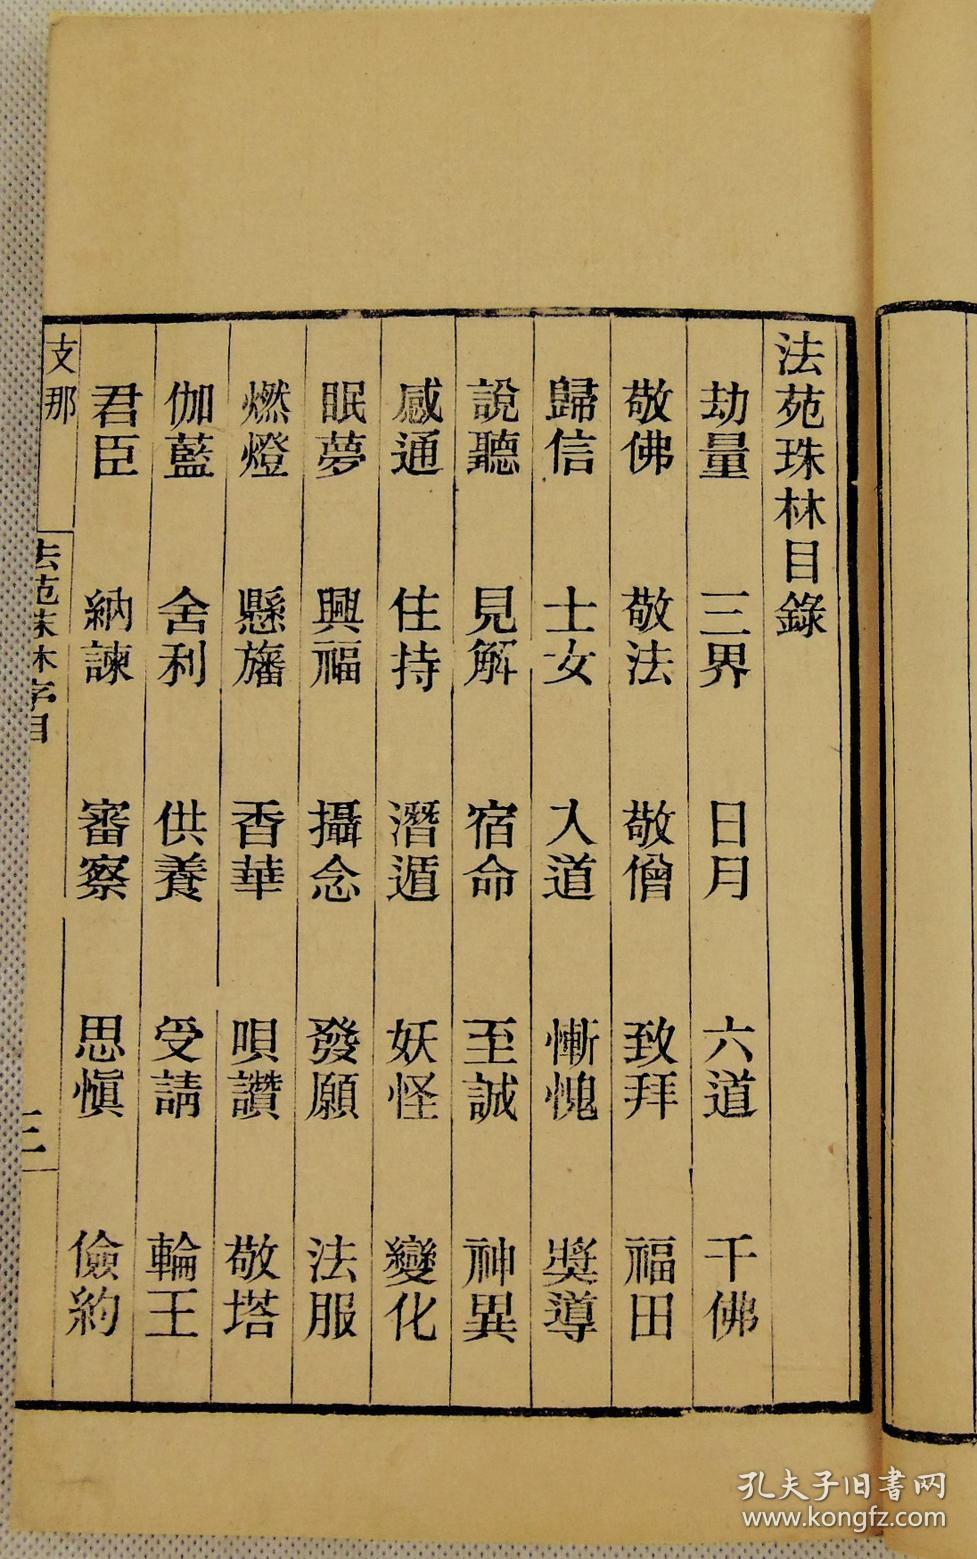 法苑珠林目錄
劫量 三界 日月 六道 千佛
敬佛 敬法 敬僧 致拜 福田
歸信 士女 入道 慚愧 奬導
說聽 見解 宿命 至誠 神異
感通 住持 潛遁 妖怪 變化
眠夢 興福 攝念 發願 法服
燃燈 懸旛 香華 唄讚 敬塔
伽藍 舍利 供養 受請 輪王
君臣 納諫 審察 思愼 儉約
支那
法苑珠林序目
孔夫子旧書网
www.kongfz.com